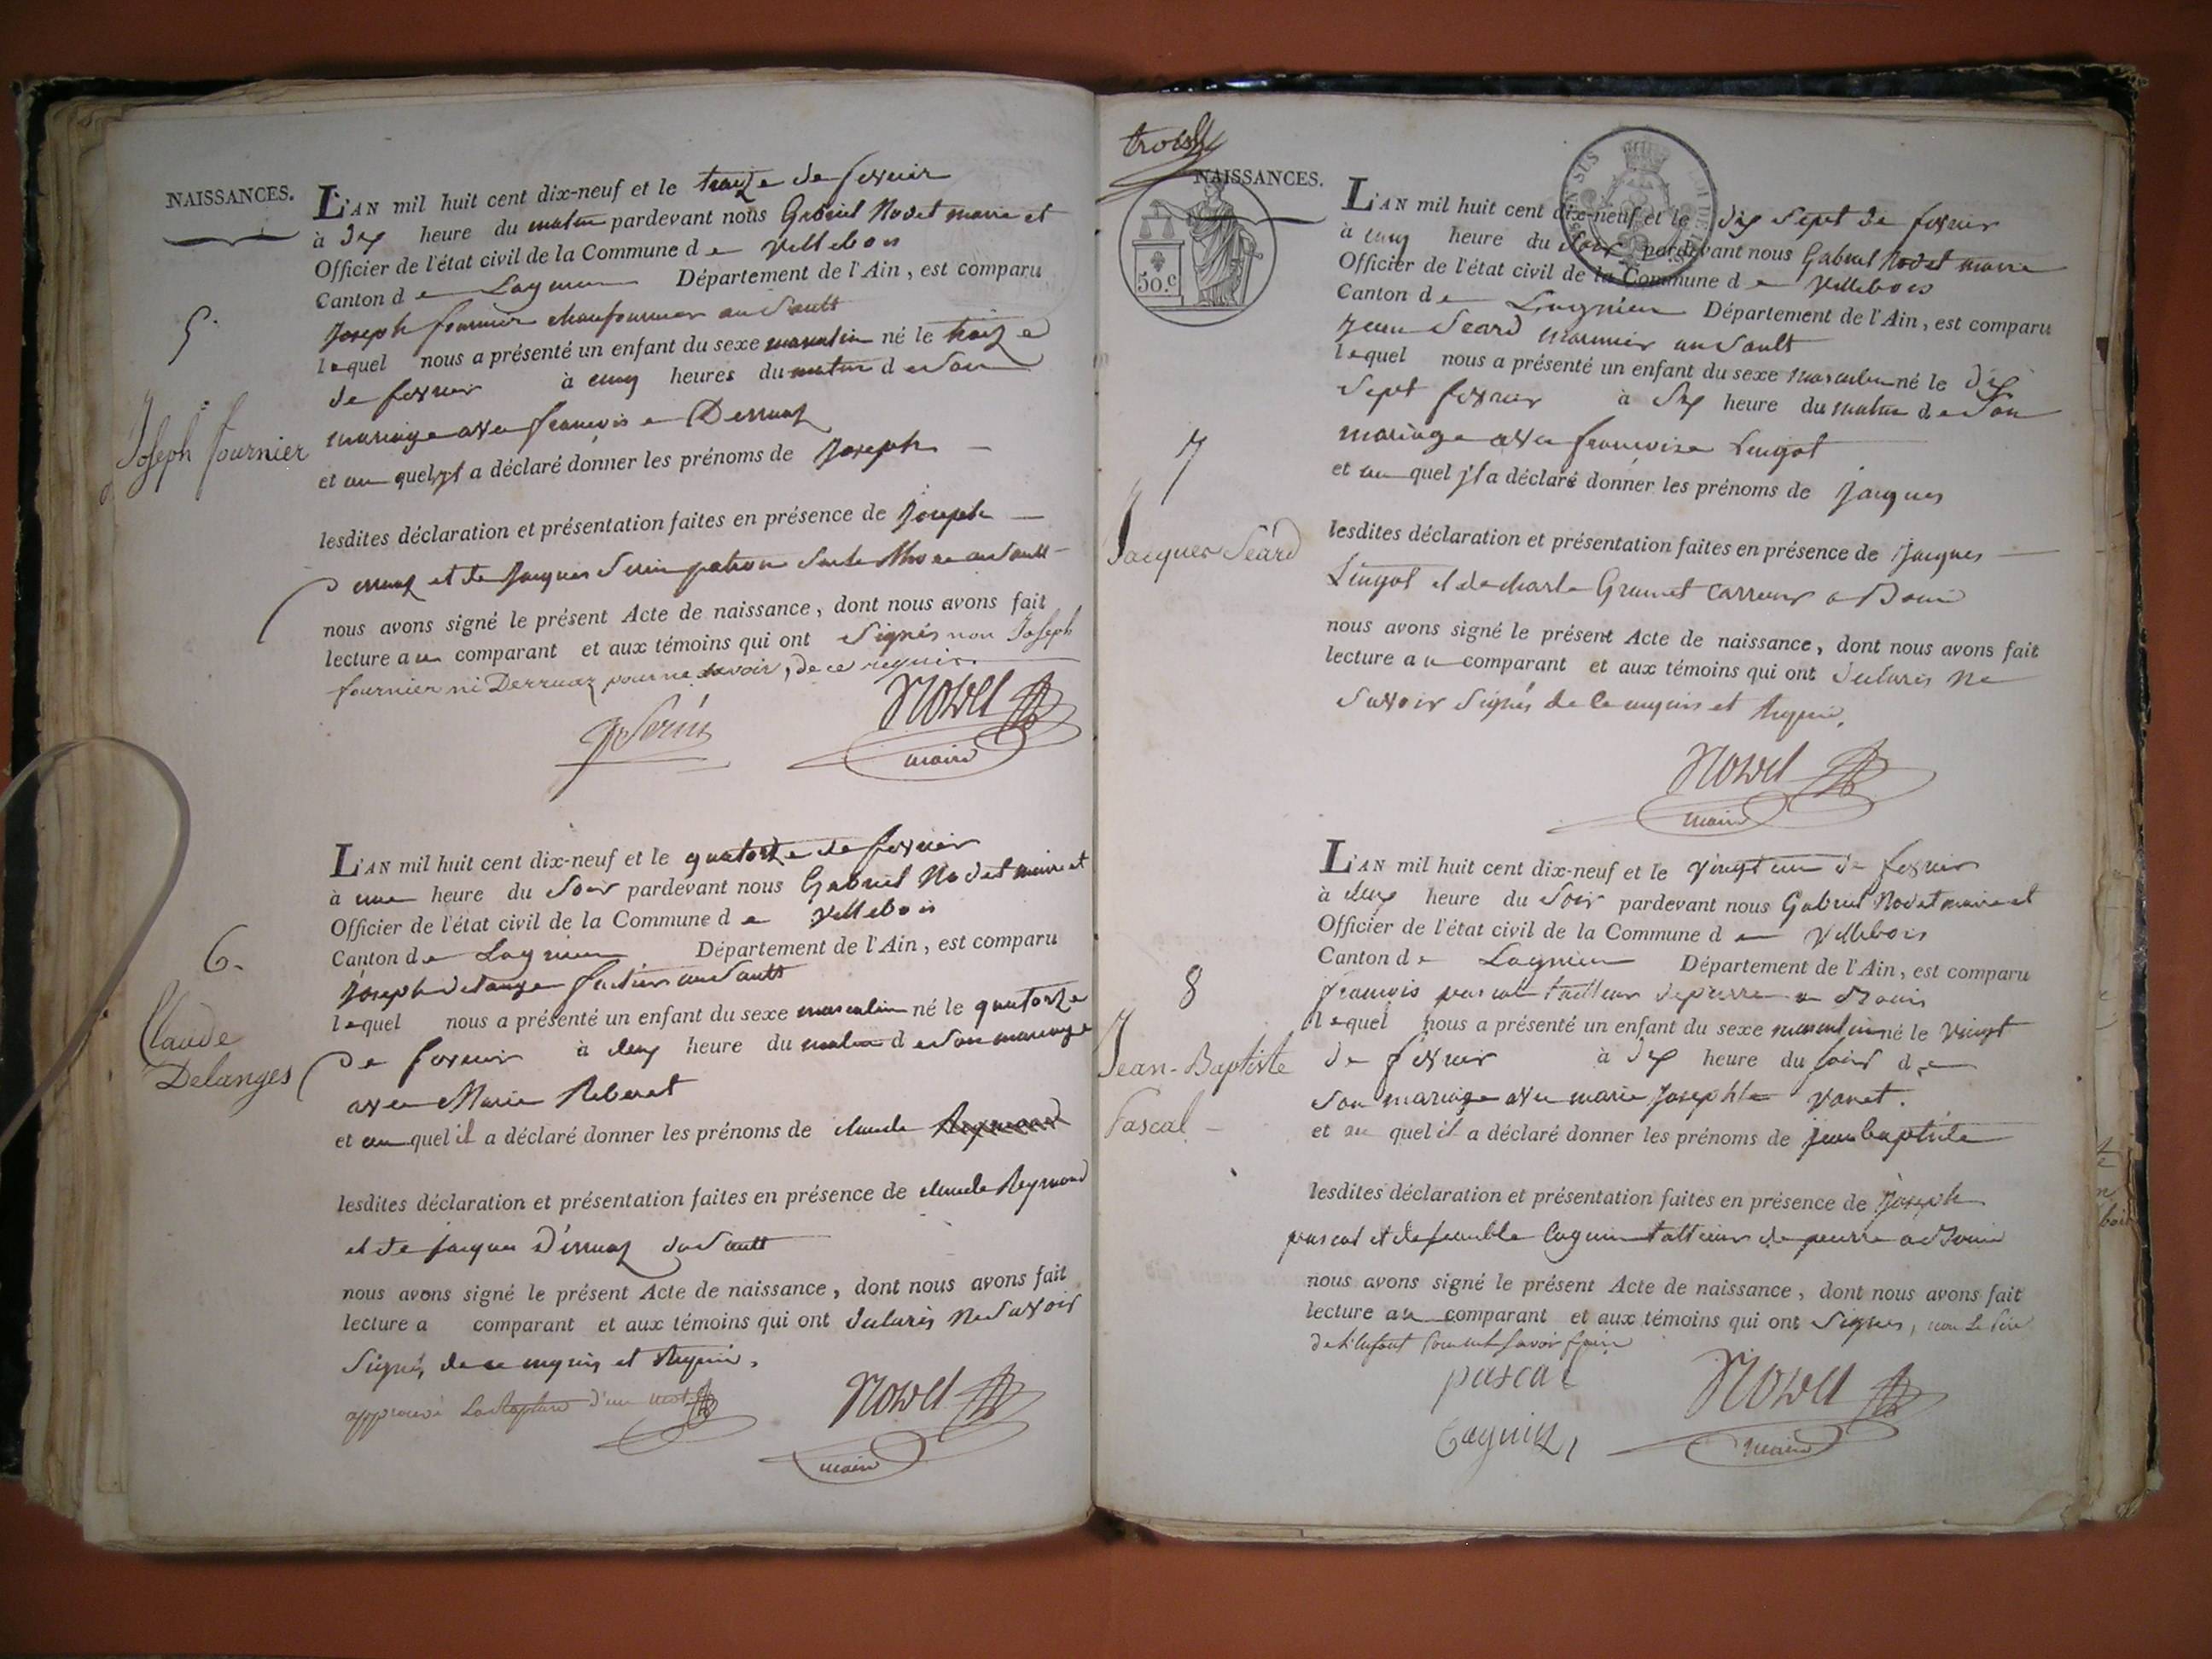 NAISSANCES.
L'AN mil huit cent dix-neuf et le treize de fevrier
à dix heure du matin pardevant nous Gabriel Nodet maire et
Officier de l'état civil de la Commune de Villebois
Canton de Lagnieu Département de l'Ain, est comparu
Joseph fournier chaufournier au Sault
lequel nous a présenté un enfant du sexe masculin né le treize
de fevrier à cinq heures du matin de son
mariage avec francoise Derruaz
et au quel yl a déclaré donner les prénoms de Joseph
lesdites déclaration et présentation faites en présence de Joseph
Derruaz et de Jacques Serin patron sur le Rhone au Sault
nous avons signé le présent Acte de naissance, dont nous avons fait
lecture au comparant et aux témoins qui ont Signés non Joseph
fournier ni Derruaz pour ne savoir, de ce requis.
J Serin Nodet
maire
5.
Joseph fournier
L'AN mil huit cent dix-neuf et le quatorze de fevrier
à une heure du Soir pardevant nous Gabriel Nodet maire et
Officier de l'état civil de la Commune de Villebois
Canton de Lagnieu Département de l'Ain, est comparu
Joseph delange au Sault
lequel nous a présenté un enfant du sexe masculin né le quatorze
de fevrier à deux heure du matin de son mariage
avec Marie Reberet
et au quel il a déclaré donner les prénoms de claude Reymond
lesdites déclaration et présentation faites en présence de claude Reymond
et de jacques Derruaz du Sault
nous avons signé le présent Acte de naissance, dont nous avons fait
lecture a comparant et aux témoins qui ont declarés ne Savoir
Signés de ce enquis et Requis.
approuvé La Rapture d'un mot
Nodet
maire
6.
Claude
Delanges
trois
NAISSANCES.
50.c
L'AN mil huit cent dix-neuf et le dix Sept de fevrier
à cinq heure du Soir pardevant nous Gabriel Nodet maire
Officier de l'état civil de la Commune de Villebois
Canton de Lagnieu Département de l'Ain, est comparu
jean Seard marinier au Sault
lequel nous a présenté un enfant du sexe masculin né le dix
Sept fevrier à Six heure du matin de Son
mariage avec francoise Lingot
et au quel yl a déclaré donner les prénoms de jacques
lesdites déclaration et présentation faites en présence de jacques
Lingot et de charle Grumet carreur a Bouis
nous avons signé le présent Acte de naissance, dont nous avons fait
lecture au comparant et aux témoins qui ont declarés ne
Savoir Signés de ce enquis et Requis.
Nodet
maire
7
Jacques Séard
L'AN mil huit cent dix-neuf et le vingt un de fevrier
à deux heure du Soir pardevant nous Gabriel Nodet maire et
Officier de l'état civil de la Commune de Villebois
Canton de Lagnieu Département de l'Ain, est comparu
francois pascal tailleur de pierre a Bouis
lequel nous a présenté un enfant du sexe masculin né le vingt
de fevrier à dix heure du soir de
son mariage avec marie josephte Vanet.
et au quel il a déclaré donner les prénoms de jean baptiste
lesdites déclaration et présentation faites en présence de Joseph
pascal et de Cagnin tailleurs de pierre a Bouis
nous avons signé le présent Acte de naissance, dont nous avons fait
lecture au comparant et aux témoins qui ont Signés, non Le Père
de L'enfant savoir faire
pascal
Nodet
Cagnin,
maire
8
Jean-Baptiste
Pascal